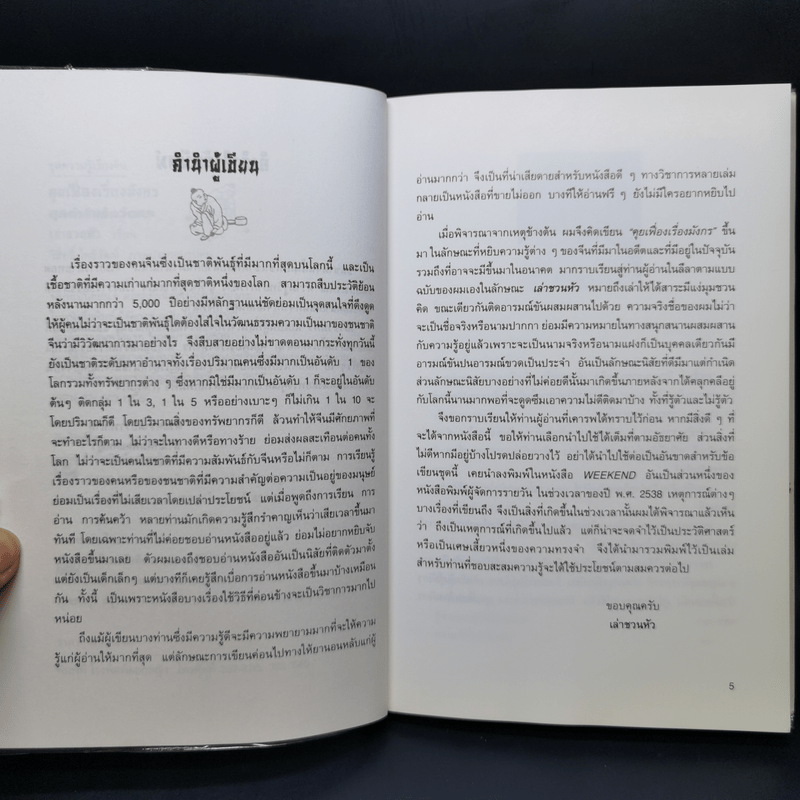 คำนำผู้เขียน
เรื่องราวของคนจีนซึ่งเป็นชาติพันธุ์ที่มีมากที่สุดบนโลกนี้ และเป็น
เชื้อชาติที่มีความเก่าแก่มากที่สุดชาติหนึ่งของโลก สามารถสืบประวัติย้อน
หลังนานมากกว่า 5,000 ปีอย่างมีหลักฐานแน่ชัดย่อมเป็นจุดสนใจที่ดึงดูด
ให้ผู้คนไม่ว่าจะเป็นชาติพันธุ์ใดต้องใส่ใจในวัฒนธรรมความเป็นมาของชนชาติ
จีนว่ามีวิวัฒนาการมาอย่างไร จึงสืบสายอย่างไม่ขาดตอนมากระทั่งทุกวันนี้
ยังเป็นชาติระดับมหาอำนาจทั้งเรื่องปริมาณคนซึ่งมีมากเป็นอันดับ 1 ของ
โลกรวมทั้งทรัพยากรต่าง ๆ ซึ่งหากมิใช่มีมากเป็นอันดับ 1 ก็จะอยู่ในอันดับ
ต้นๆ ติดกลุ่ม 1 ใน 3, 1 ใน 5 หรืออย่างเบาะๆ ก็ไม่เกิน 1 ใน 10 จะ
โดยปริมาณก็ดี โดยปริมาณสิ่งของทรัพยากรก็ดี ล้วนทำให้จีนมีศักยภาพที่
จะทำอะไรก็ตาม ไม่ว่าจะในทางดีหรือทางร้าย ย่อมส่งผลสะเทือนต่อคนทั้ง
โลก ไม่ว่าจะเป็นคนในชาติที่มีความสัมพันธ์กับจีนหรือไม่ก็ตาม การเรียนรู้
เรื่องราวของคนหรือของชนชาติที่มีความสำคัญต่อความเป็นอยู่ของมนุษย์
ย่อมเป็นเรื่องที่ไม่เสียเวลาโดยเปล่าประโยชน์ แต่เมื่อพูดถึงการเรียน การ
อ่าน การค้นคว้า หลายท่านมักเกิดความรู้สึกรำคาญเห็นว่าเสียเวลาขึ้นมา
ทันที โดยเฉพาะท่านที่ไม่ค่อยชอบอ่านหนังสืออยู่แล้ว ย่อมไม่อยากหยิบจับ
หนังสือขึ้นมาเลย ตัวผมเองถึงชอบอ่านหนังสืออันเป็นนิสัยที่ติดตัวมาตั้ง
แต่ยังเป็นเด็กเล็กๆ แต่บางทีก็เคยรู้สึกเบื่อการอ่านหนังสือขึ้นมาบ้างเหมือน
กัน ทั้งนี้ เป็นเพราะหนังสือบางเรื่องใช้วิธีที่ค่อนข้างจะเป็นวิชาการมากไป
หน่อย
ถึงแม้ผู้เขียนบางท่านซึ่งมีความรู้ดีจะมีความพยายามมากที่จะให้ความ
รู้แก่ผู้อ่านให้มากที่สุด แต่ลักษณะการเขียนค่อนไปทางให้ยานอนหลับแก่ผู้
อ่านมากกว่า จึงเป็นที่น่าเสียดายสำหรับหนังสือดี ๆ ทางวิชาการหลายเล่ม
กลายเป็นหนังสือที่ขายไม่ออก บางทีให้อ่านฟรี ๆ ยังไม่มีใครอยากหยิบไป
อ่าน
เมื่อพิจารณาจากเหตุข้างต้น ผมจึงคิดเขียน “คุยเฟื่องเรื่องมังกร” ขึ้น
มา ในลักษณะที่หยิบความรู้ต่าง ๆ ของจีนที่มีมาในอดีตและที่มีอยู่ในปัจจุบัน
รวมถึงที่อาจจะมีขึ้นมาในอนาคต มากราบเรียนสู่ท่านผู้อ่านในลีลาตามแบบ
ฉบับของผมเองในลักษณะ เล่าชวนหัว หมายถึงเล่าให้ได้สาระมีแง่มุมชวน
คิด ขณะเดียวกันติดอารมณ์ขันผสมผสานไปด้วย ความจริงชื่อของผมไม่ว่า
จะเป็นชื่อจริงหรือนามปากกา ย่อมมีความหมายในทางสนุกสนานผสมผสาน
กับความรู้อยู่แล้วเพราะจะเป็นนามจริงหรือนามแฝงก็เป็นบุคคลเดียวกันมี
อารมณ์ขันปนอารมณ์ขวดเป็นประจำ อันเป็นลักษณะนิสัยที่ดีมีมาแต่กำเนิด
ส่วนลักษณะนิสัยบางอย่างที่ไม่ค่อยดีนั้นมาเกิดขึ้นภายหลังจากได้คลุกคลีอยู่
กับโลกนี้นานมากพอที่จะดูดซึมเอาความไม่ดีติดมาบ้าง ทั้งที่รู้ตัวและไม่รู้ตัว
จึงขอกราบเรียนให้ท่านผู้อ่านที่เคารพได้ทราบไว้ก่อน หากมีสิ่งดี ๆ ที่
จะได้จากหนังสือนี้ ขอให้ท่านเลือกนำไปใช้ได้เต็มที่ตามอัธยาศัย ส่วนสิ่งที่
ไม่ดีหากมีอยู่บ้างโปรดปล่อยวางไว้ อย่าได้นำไปใช้ต่อเป็นอันขาดสำหรับข้อ
เขียนชุดนี้ เคยนำลงพิมพ์ในหนังสือ WEEKEND อันเป็นส่วนหนึ่งของ
หนังสือพิมพ์ผู้จัดการรายวัน ในช่วงเวลาของปี พ.ศ. 2538 เหตุการณ์ต่างๆ
บางเรื่องที่เขียนถึง จึงเป็นสิ่งที่เกิดขึ้นในช่วงเวลานั้นผมได้พิจารณาแล้วเห็น
ว่า ถึงเป็นเหตุการณ์ที่เกิดขึ้นไปแล้ว แต่ก็น่าจะจดจำไว้เป็นประวัติศาสตร์
หรือเป็นเศษเสี้ยวหนึ่งของความทรงจำ จึงได้นำมารวมพิมพ์ไว้เป็นเล่ม
สำหรับท่านที่ชอบสะสมความรู้จะได้ใช้ประโยชน์ตามสมควรต่อไป
ขอบคุณครับ
เล่าชวนหัว
5